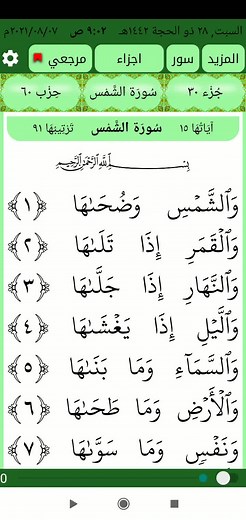 السبت, ٢٨ ذو الحجة ١٤٤٢هـ ٩:٠٢ ص ٢٠٢١/٠٨/٠٧م
المزيد سور اجزاء مرجعي
جُزْء ٣٠ سُورَة الشَّمْس حِزْب ٦٠
آيَاتُهَا ١٥ سُورَة الشَّمْس تَرْتِيبُهَا ٩١
بِسْمِ اللَّهِ الرَّحْمَٰنِ الرَّحِيمِ
وَٱلشَّمْسِ وَضُحَىٰهَا ﴿١﴾
وَٱلْقَمَرِ إِذَا تَلَىٰهَا ﴿٢﴾
وَٱلنَّهَارِ إِذَا جَلَّىٰهَا ﴿٣﴾
وَٱلَّيْلِ إِذَا يَغْشَىٰهَا ﴿٤﴾
وَٱلسَّمَآءِ وَمَا بَنَىٰهَا ﴿٥﴾
وَٱلْأَرْضِ وَمَا طَحَىٰهَا ﴿٦﴾
وَنَفْسٍ وَمَا سَوَّىٰهَا ﴿٧﴾
0